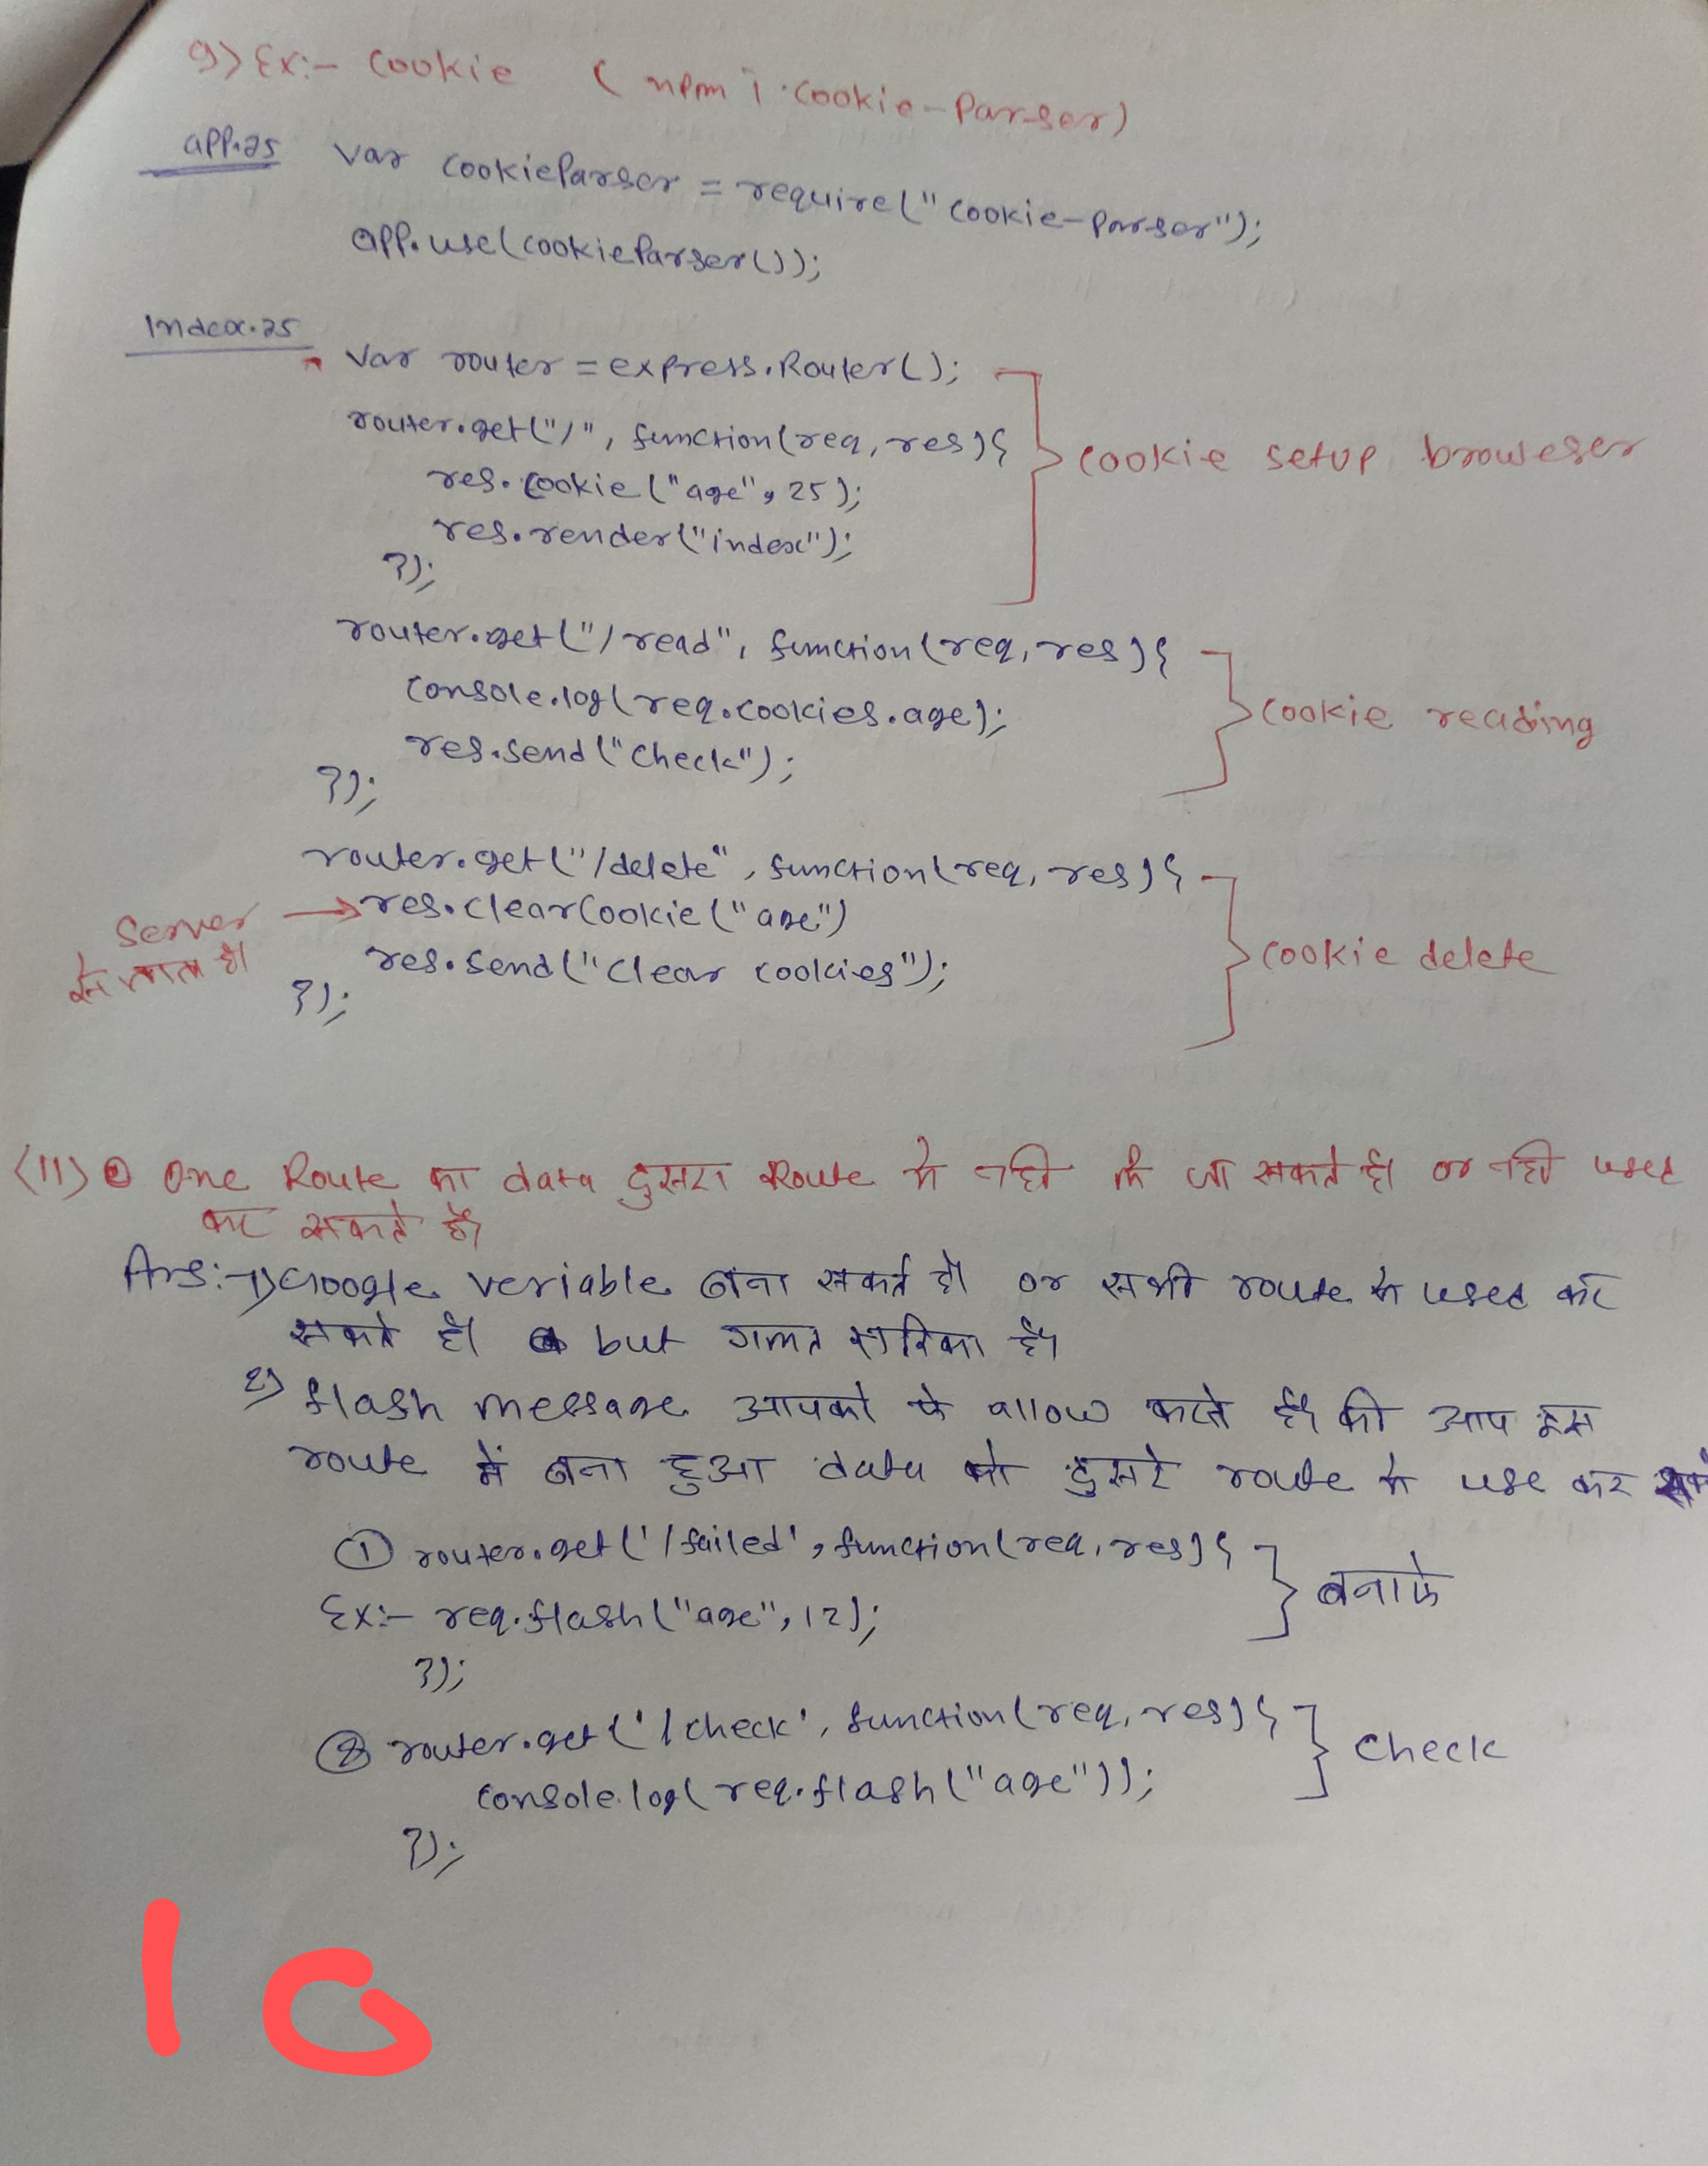 9) Ex:- Cookie ( npm i cookie-Parser)
app.js var cookieParser = require("cookie-parser");
app.use(cookieParser());
Index.js
var router = express.Router();
router.get("/", function(req, res){
res.cookie("age", 25);
res.render("index");
});
cookie setup broweser
router.get("/read", function(req, res){
console.log(req.cookies.age);
res.send("Check");
});
cookie reading
router.get("/delete", function(req, res){
Server → res.clearCookie("age")
से
res.send("Clear cookies");
});
cookie delete
(11) One Route का data दुसरा Route मे नही जा सकते है। or नही used
कर सकते है।
Ans:-1) Google veriable बना सकते है। or सभी route मे used कर
सकते है। but गलत तरिका है।
2) flash message आपको ये allow करते है। की आप इस
route में बना हुआ data को दुसरे route मे use कर सके
① router.get('/failed', function(req, res){
Ex:- req.flash("age", 12);
});
बनाके
② router.get('/check', function(req, res){
console.log(req.flash("age"));
});
Check
10